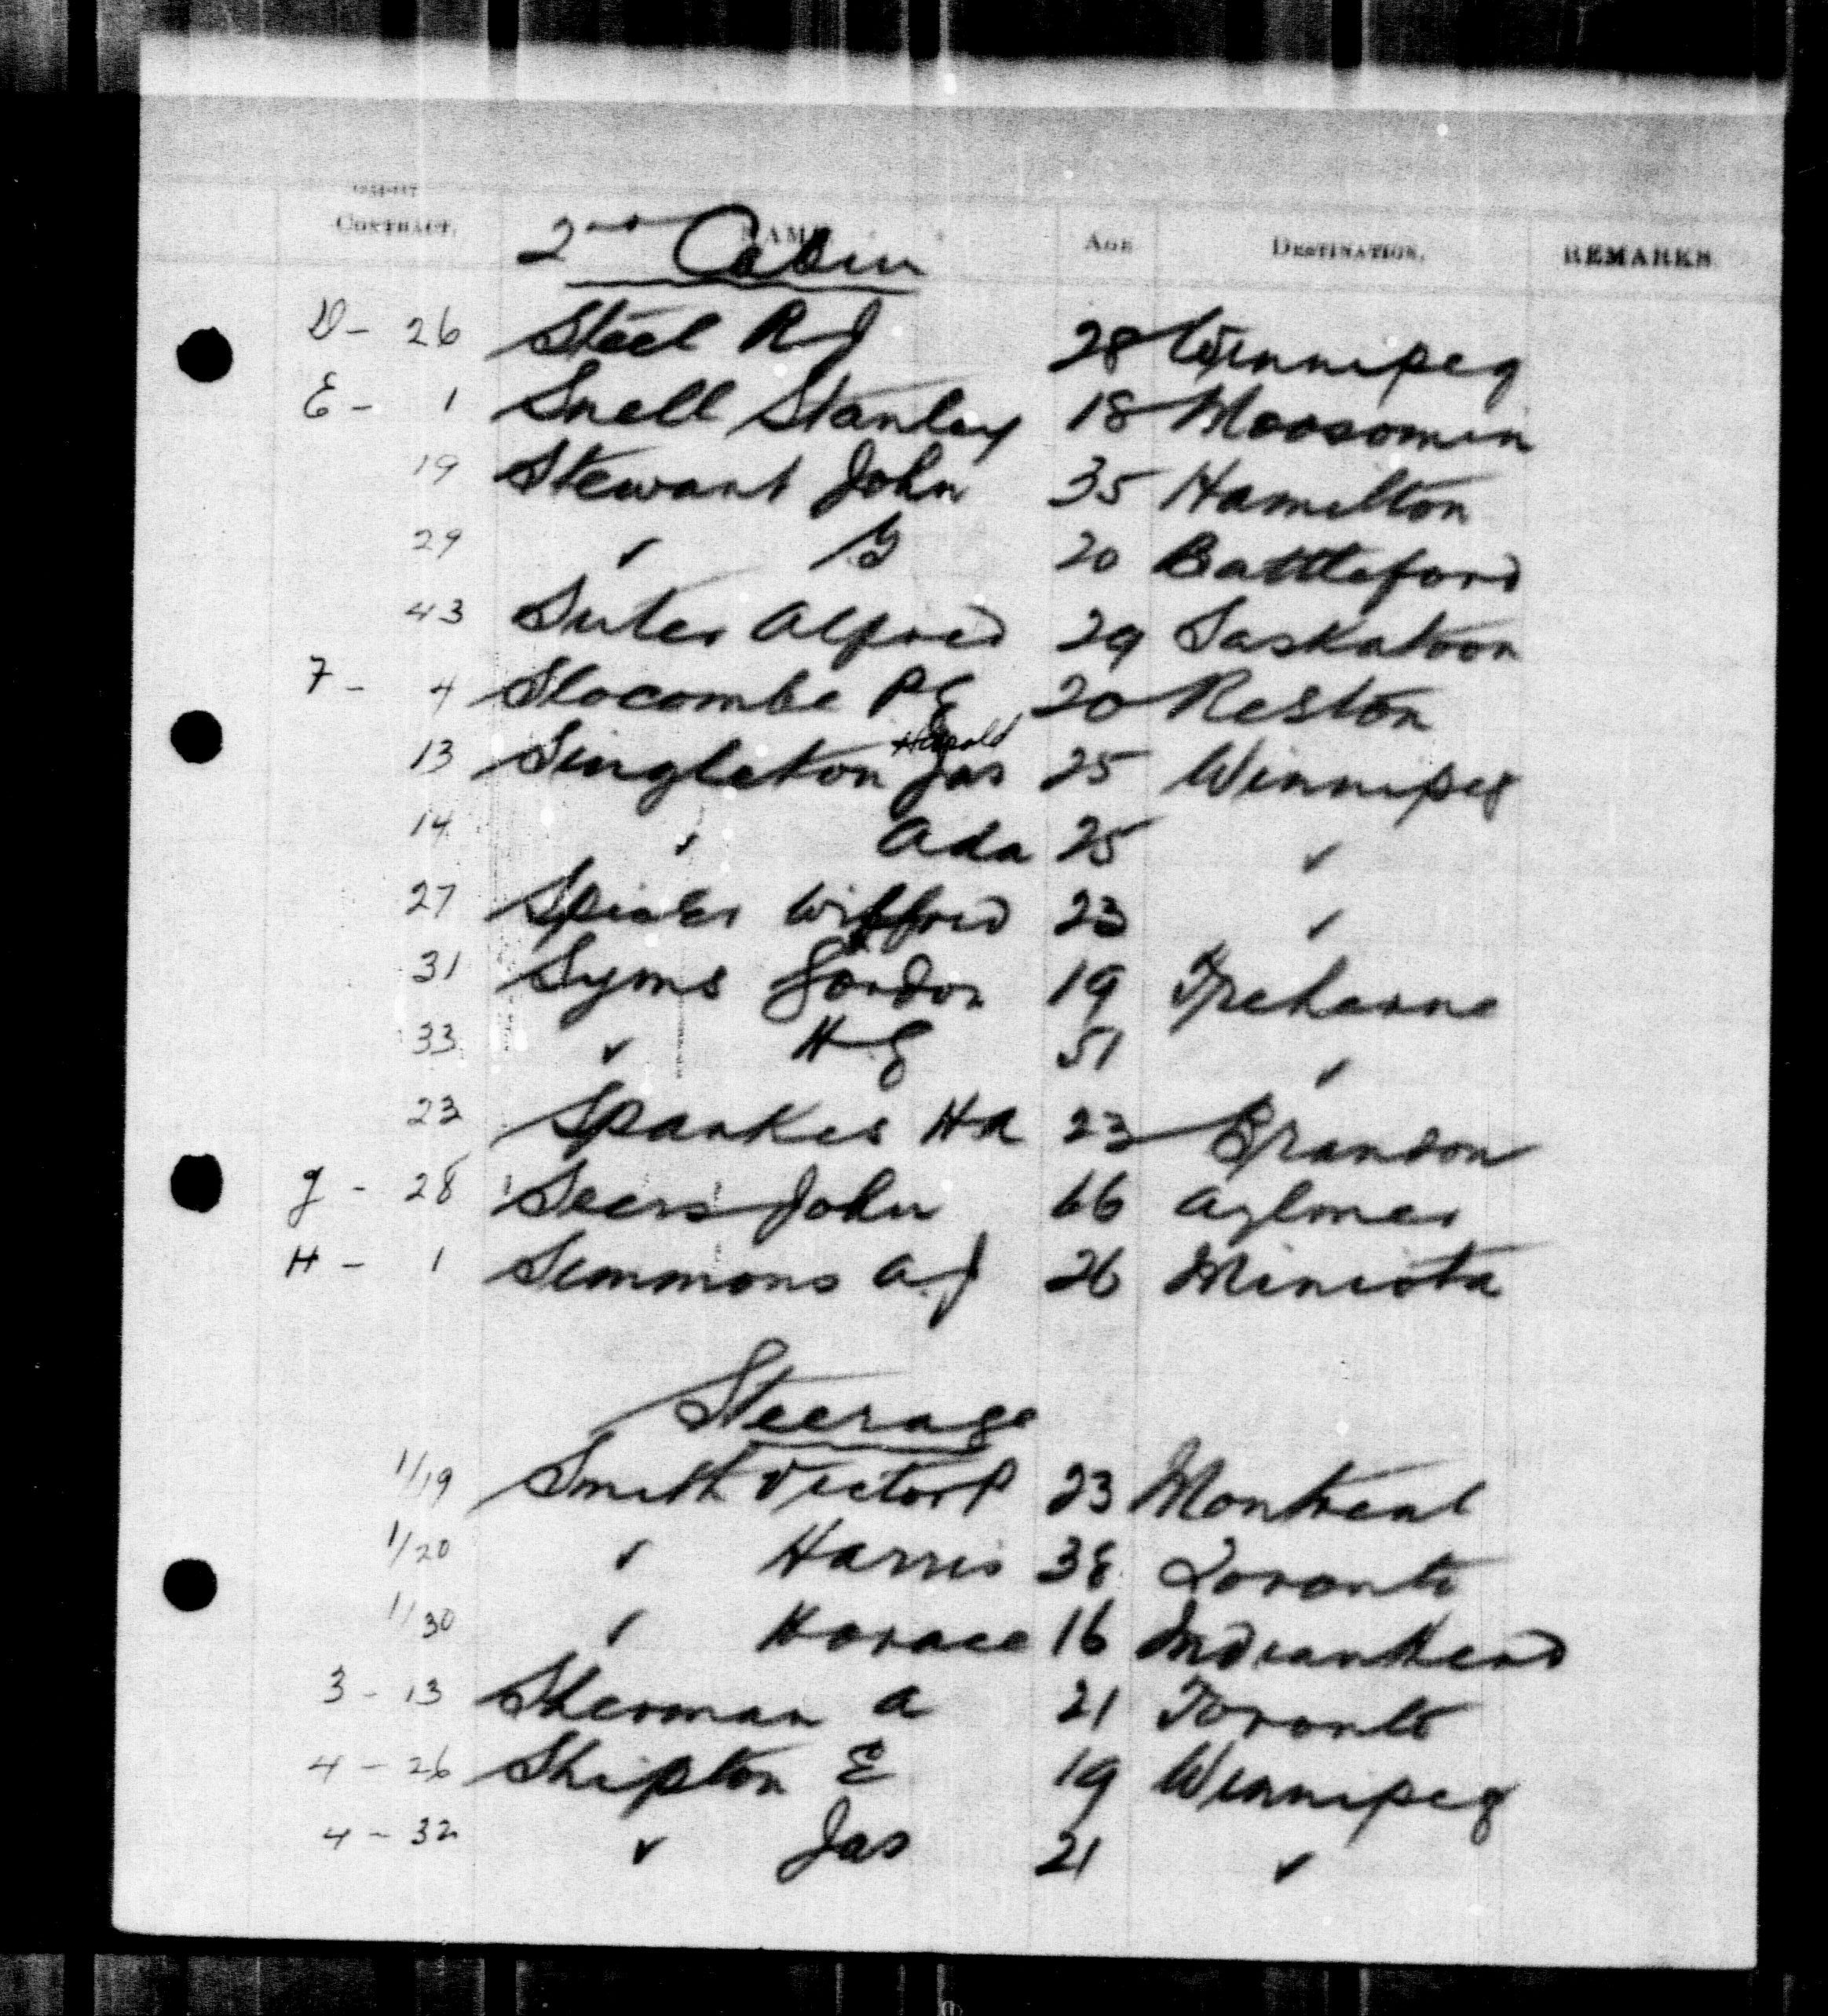 CONTRACT. NAME AGE DESTINATION. REMARKS
2nd Cabin
D - 26 Steel R J 28 Winnipeg
E - 1 Snell Stanley 18 Moosomin
19 Stewart John 35 Hamilton
29 " G 20 Battleford
43 Suter Alfred 29 Saskatoon
F - 4 Slocombe P E 20 Reston
Harold
13 Singleton Jas 25 Winnipeg
14 " Ada 25 "
27 Wilfred 23 "
31 Syms Gordon 19 Treherne
33 " H E 51 "
23 Sparkes H A 23 Brandon
G - 28 Seers John 66 Aylmer
H - 1 Simmons A J 26 Miniota
Steerage
1/19 Smith Victor P 23 Montreal
1/20 " Harris 38 Toronto
1/30 " Horace 16 Indian Head
3 - 13 Sherman A 21 Toronto
4 - 26 Shipton E 19 Winnipeg
4 - 32 " Jas 21 "